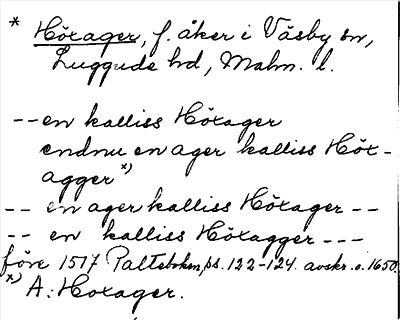 * Höxager, f. åker i Väsby sn,
Luggude hd, Malm. l.
-- en kalliss Höxager
endnu en ager kalliss Höx-
agger *)
-- en ager kalliss Höxager --
-- en kalliss Höxagger ---
före 1517 Palteboken, ss. 122-124. avskr. o. 1650.
*) A: Hoxager.